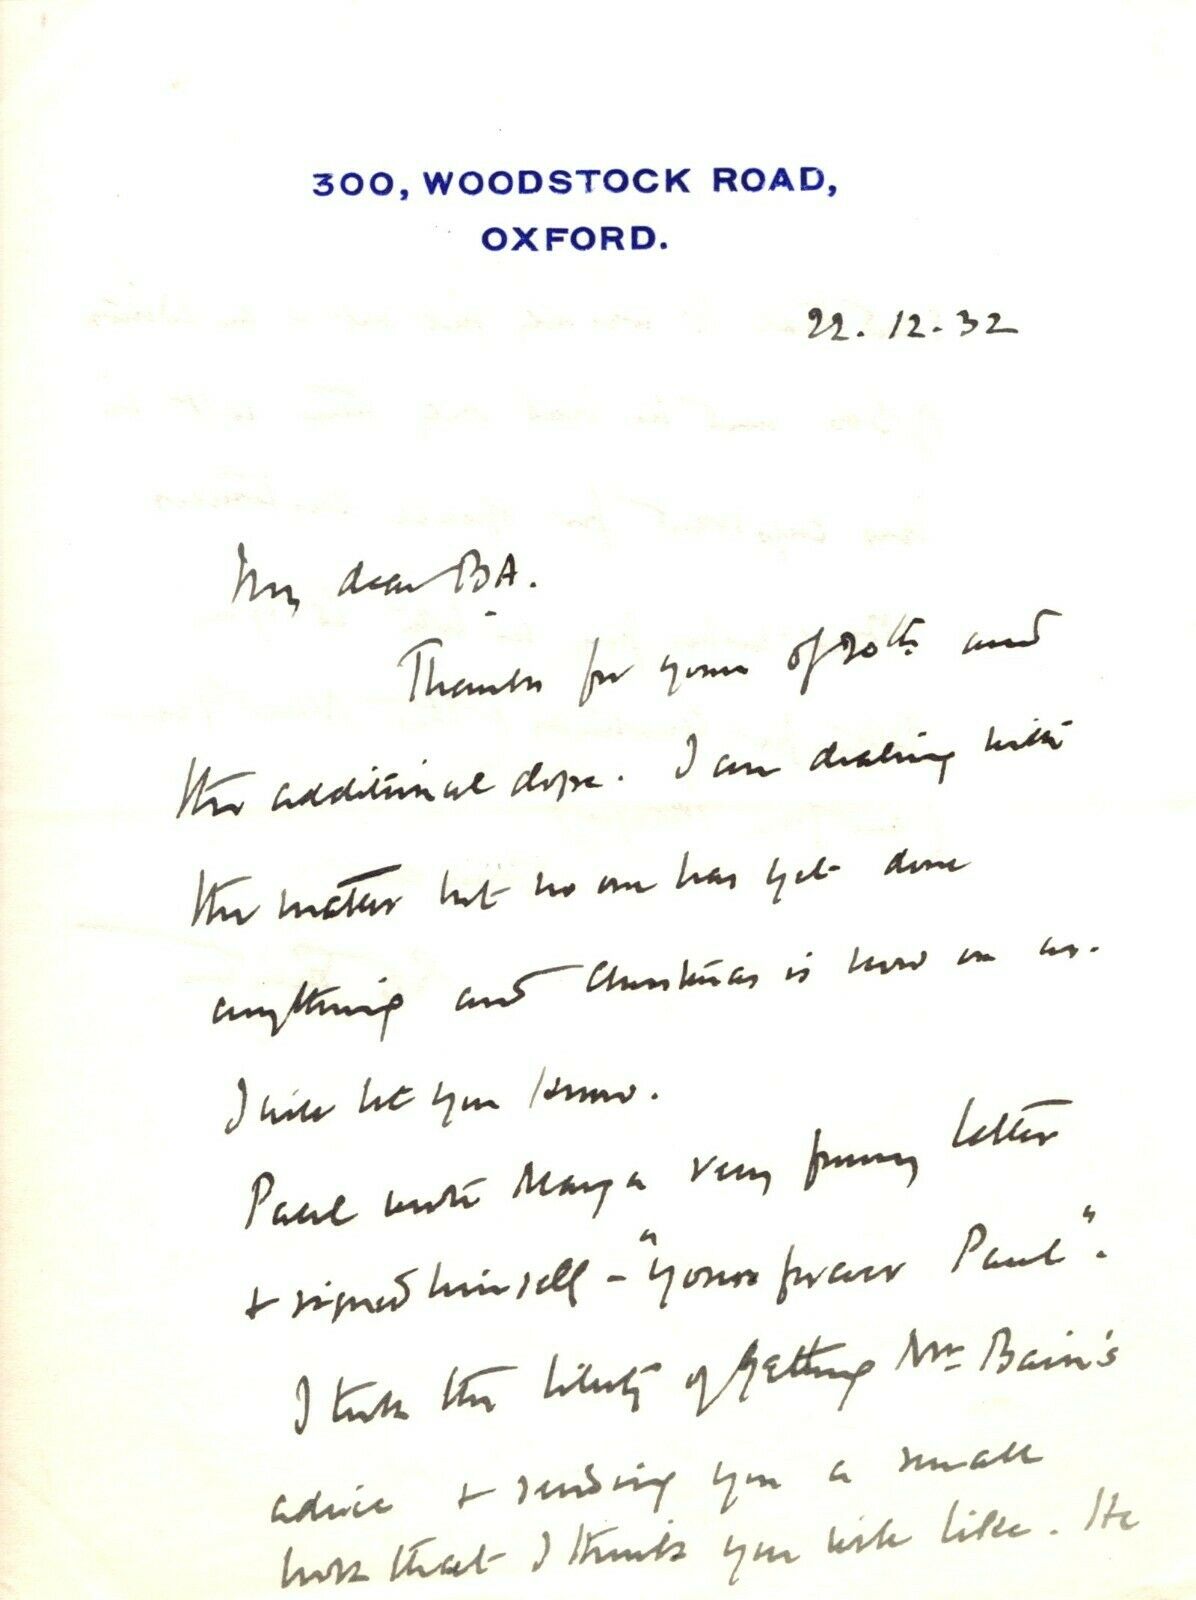 300, WOODSTOCK ROAD,
OXFORD.
22.12.32
My dear BA.
Thanks for yours of 20th. and
the additional dope. I am dealing with
the matter but no one has yet done
anything and Christmas is now on us.
I will let you know.
Paul wrote Mary a very funny letter
& signed himself – "Yours forever Paul".
I took the liberty of getting Mr. Bain's
advice & sending you a small
book that I think you will like. He